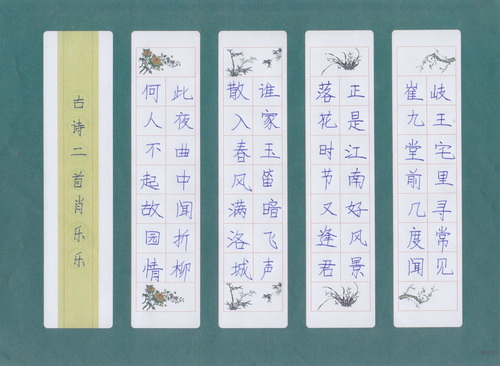 岐王宅里寻常见
崔九堂前几度闻
正是江南好风景
落花时节又逢君
谁家玉笛暗飞声
散入春风满洛城
此夜曲中闻折柳
何人不起故园情
古诗二首肖乐乐